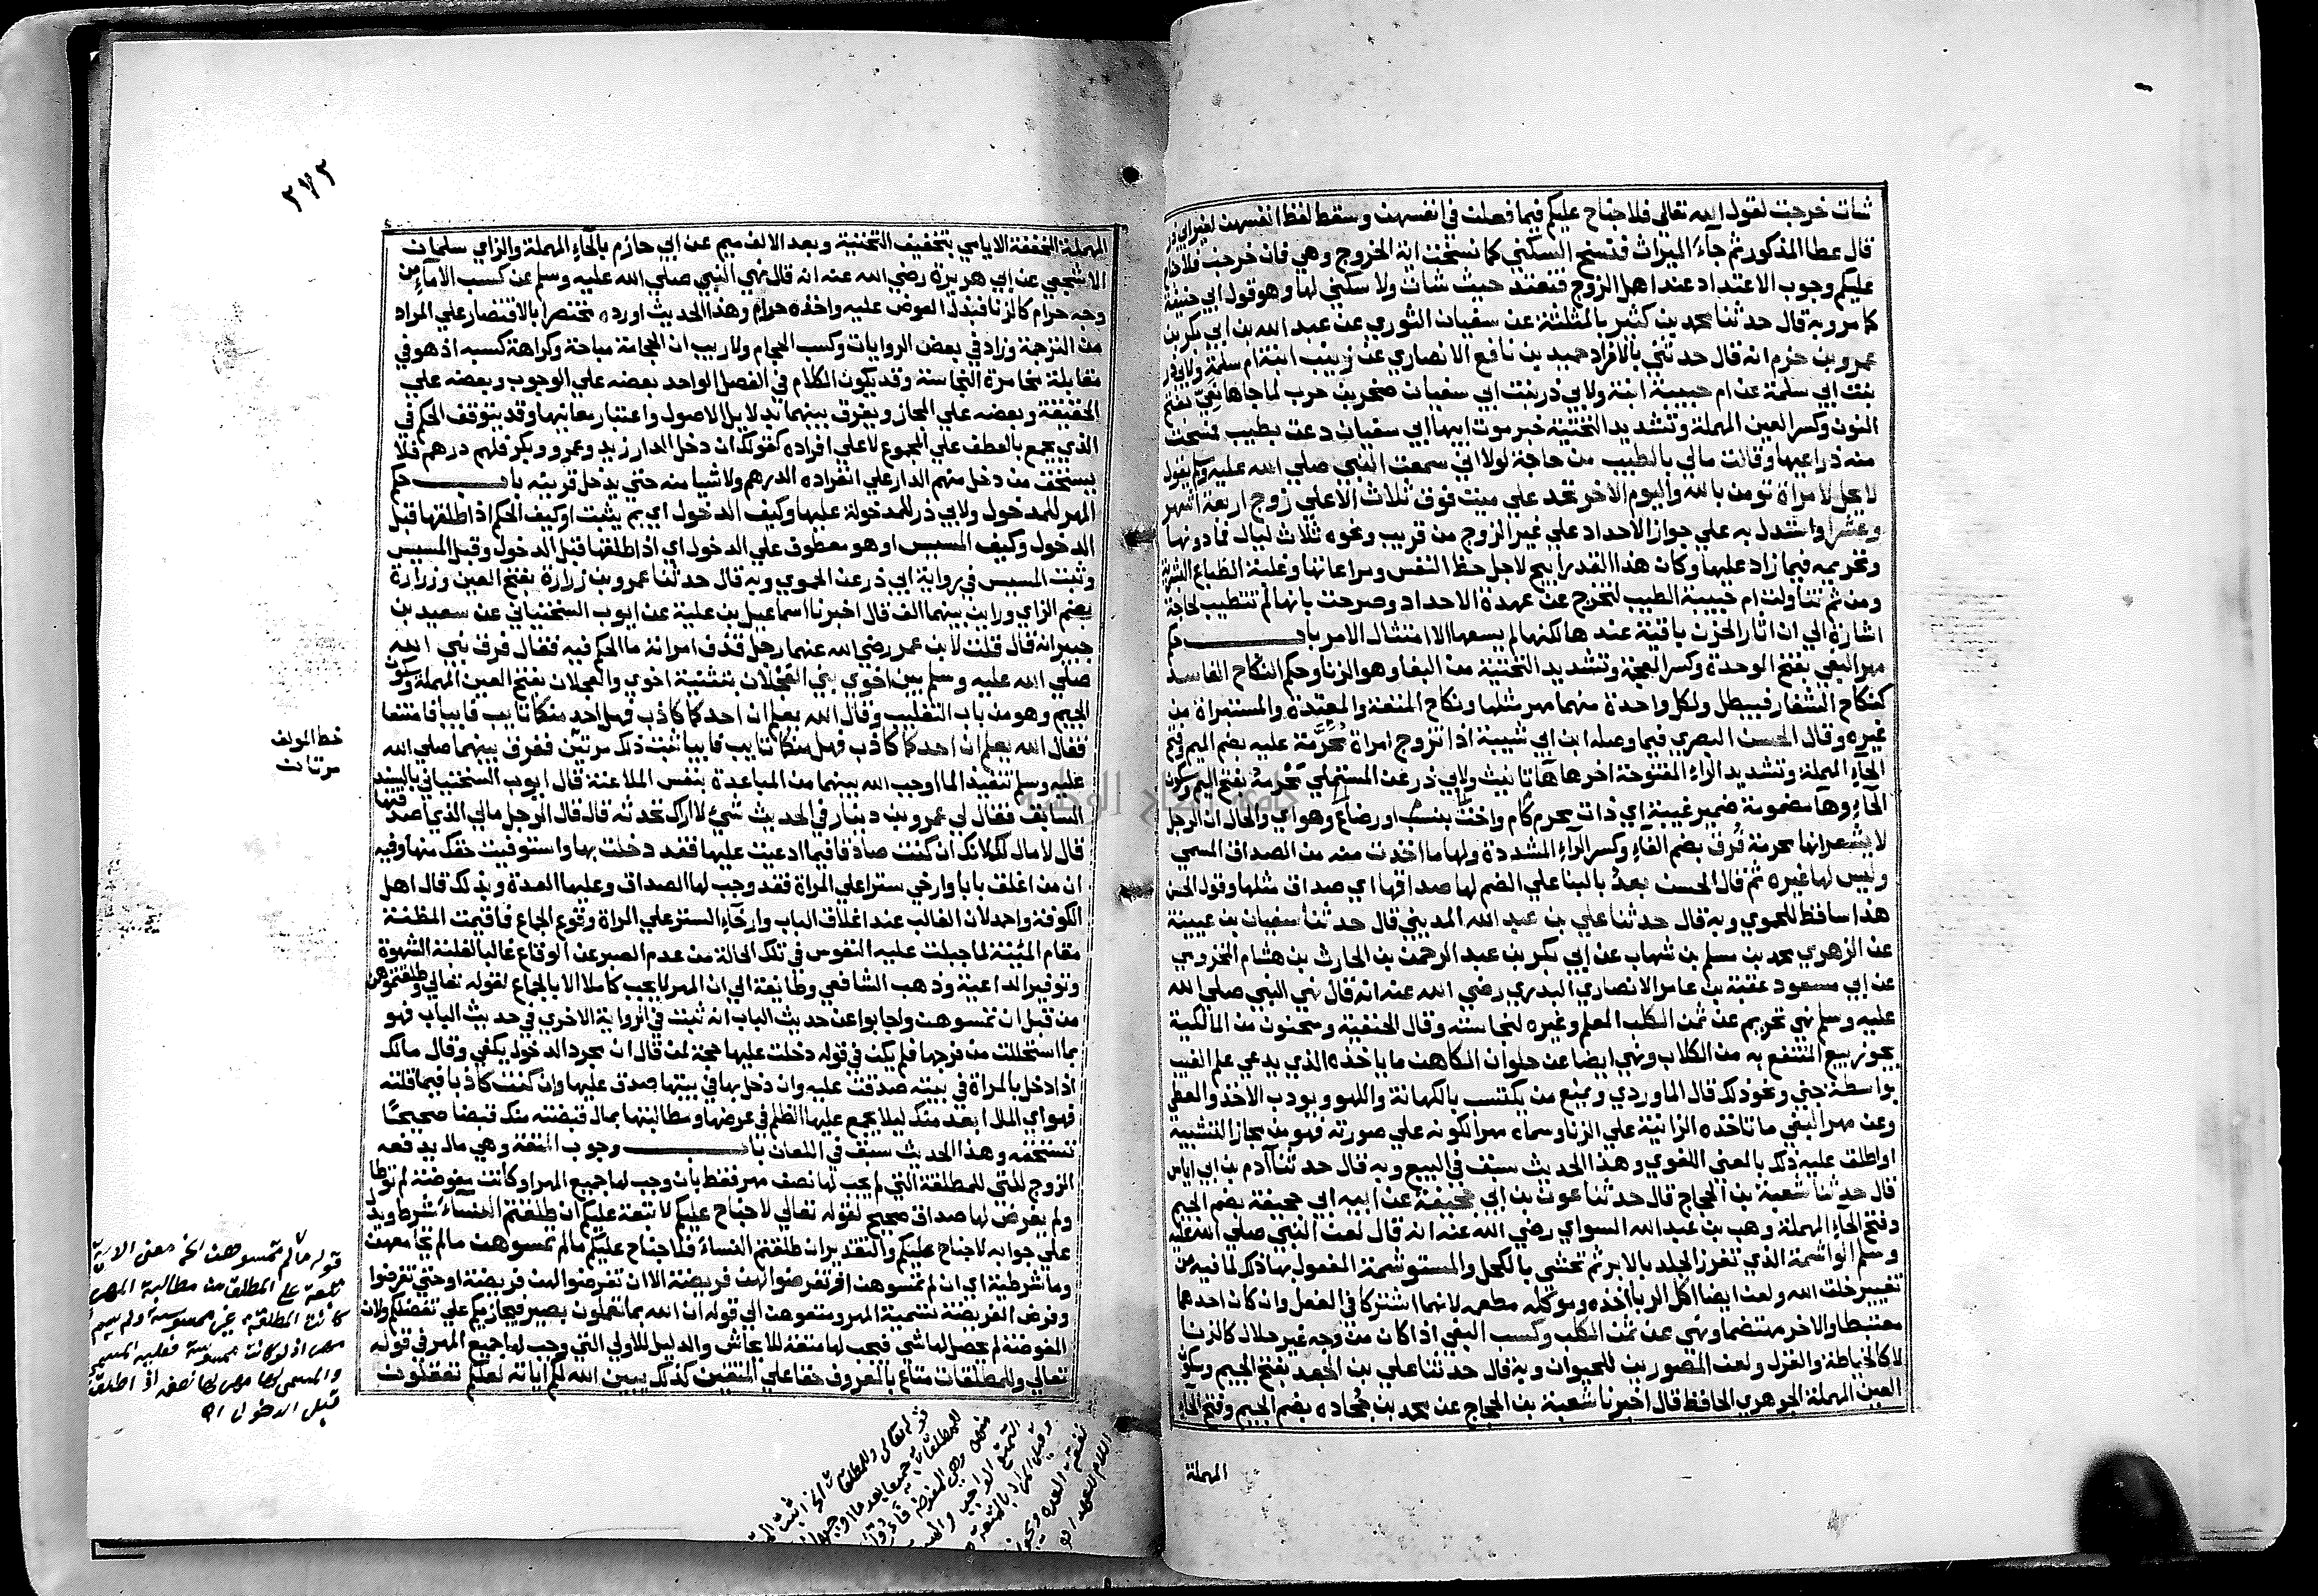 شات خرجت لقول الله تعالى فلا جناح عليكم فيما فعلت في انفسهن وسقط لفظ انفسهن لغير ابي ذر
قال عطا المذكور ثم جاء الميراث فنسخ السكني كما نسخت اية الخروج وهي فان خرجن فلا جناح
عليكم وجوب الاعتداد عند اهل الزوج فتعتد حيث شات ولا سكني لها وهو قول ابي حنيفة
كما مر وبه قال حدثنا محمد بن كثير بالمثلثة عن سفيان الثوري عن عبد الله بن ابي بكر بن
عمرو بن حزم انه قال حدثني بالافراد حميد بن نافع الانصاري عن زينب ابنة ام سلمة ولابي ذر
بنت ابي سلمة عن ام حبيبة ابنة ولابي ذر بنت ابي سفيان صخر بن حرب لما جاها نعي بفتح
النون وكسر العين المهملة وتشديد التحتية خبر موت ابيها ابي سفيان دعت بطيب فمسحت
منه ذراعيها وقالت مالي بالطيب من حاجة لولا اني سمعت النبي صلي الله عليه وسلم يقول
لا يحل لامراة تومن بالله واليوم الاخر تحد علي ميت فوق ثلاث الا علي زوج اربعة اشهر
وعشرا واستدل به علي جواز الاحداد علي غير الزوج من قريب ونحوه ثلاث ليال فما دونها
وتحريمه فيما زاد عليها وكان هذا القدر ابيح لاجل حظ النفس ومراعاتها وغلبة الطباع البشرية
ومن ثم تناولت ام حبيبة الطيب لتخرج عن عهدة الاحداد وصرحت بانها لم تتطيب لحاجة
اشارة الي ان اثار الحزن باقية عندها لكنها لم يسعها الا امتثال الامر باب حكم
مهر البغي بفتح الموحدة وكسر المعجمة وتشديد التحتية من البغا وهو الزنا وحكم النكاح الفاسد
كنكاح الشغار فيبطل ولكل واحدة منهما مهر مثلها ونكاح المتعة والمعتدة والمستبراة من
غيره وقال الحسن البصري فيما وصله ابن ابي شيبة اذا تزوج امراة مُحَرَّمة عليه بضم الميم وفتح
الحاء المهملة وتشديد الراء المفتوحة اخرها هاء تانيث ولابي ذر عن المستملي مَحْرمهُ بفتح الميم وسكون
الحاء وهاء مضمومة ضمير غيبة اي ذات محرم كام واخت بنسب او رضاع وهو اي والحال ان الرجل
لا يشعر انها محرمة فُرِّق بضم الفاء وكسر الراء المشددة ولها ما اخذت منه من الصداق المسمي
وليس لها غيره ثم قال الحسن بعدُ بالبنا علي الضم لها صداقها اي صداق مثلها وقول الحسن
هذا ساقط للحموي وبه قال حدثنا علي بن عبد الله المديني قال حدثنا سفيان بن عيينة
عن الزهري محمد بن مسلم بن شهاب عن ابي بكر بن عبد الرحمن بن الحارث بن هشام المخزومي
عن ابي مسعود عقبة بن عامر الانصاري البدري رضي الله عنه انه قال نهي النبي صلي الله
عليه وسلم نهي تحريم عن ثمن الكلب المعلم وغيره لنجاسته وقال الحنفية وسحنون من المالكية
يجوز بيع المنتفع به من الكلاب ونهي ايضا عن حلوان الكاهن ما ياخذه الذي يدعي علم الغيب
بواسطة جني ونحو ذلك قال الماوردي ويمنع من يكتسب بالكهانة واللهو ويودب الاخذ والمعطي
وعن مهر البغي ما تاخذه الزانية علي الزنا وسماه مهرا لكونه علي صورته فهو من مجاز التشبيه
او اطلق عليه ذلك بالمعني اللغوي وهذا الحديث سبق في البيع وبه قال حدثنا ادم بن ابي اياس
قال حدثنا شعبة بن الحجاج قال حدثنا عون بن ابي جحيفة عن ابيه ابي جحيفة بضم الجيم
وفتح الحاء المهملة وهب بن عبد الله السواي رضي الله عنه انه قال لعن النبي صلي الله عليه
وسلم الواشمة الذي تغرز الجلد بالابر ثم تحشي بالكحل والمستوشمة المفعول بها ذلك لما فيه من
تغيير خلق الله ولعن ايضا اكل الربا اخذه وموكله مطعمه لانهما اشتركا في الفعل وان كان احدهما
مغتبطا والاخر مهتضما ونهي عن ثمن الكلب وكسب البغي اذا كان من وجه غير حلال كالزنا
لا كالخياطة والغزل ولعن المصورين للحيوان وبه قال حدثنا علي بن الجعد بفتح الجيم وسكون
العين المهملة الجوهري الحافظ قال اخبرنا شعبة بن الحجاج عن محمد بن جُحاده بضم الجيم وفتح الحاء
المهملة
٢٧٢
المهملة المخففة الايامي بتخفيف التحتية وبعد الالف ميم عن ابي حازم بالحاء المهملة والزاي سلمان
الاشجعي عن ابي هريرة رضي الله عنه انه قال نهي النبي صلي الله عليه وسلم عن كسب الاماء من
وجه حرام كالزنا فبذل العوض عليه واخذه حرام وهذا الحديث اورده مختصرا بالاقتصار علي المراد
من الترجمة وزاد في بعض الروايات وكسب الحجام ولا ريب ان الحجامة مباحة وكراهة كسبه اذ هو في
مقابلة مخامرة النجاسة وقد يكون الكلام في الفصل الواحد بعضه علي الوجوب وبعضه علي
الحقيقة وبعضه علي المجاز ويفرق بينهما بدلايل الاصول واعتبار معانيها وقد يتوقف الحكم في
الذي يجمع بالعطف علي المجموع لا علي افراده كقولك ان دخل الدار زيد وعمرو وبكر فلهم درهم فلا
يستحق من دخل منهم الدار علي انفراده الدرهم ولا شيا منه حتي يدخل قرينه باب حكم
المهر للمدخول ولابي ذر للمدخولة عليها وكيف الدخول اي بم يثبت او كيف الحكم اذا طلقها قبل
الدخول وكيف المسيس او هو معطوف علي الدخول اي اذا طلقها قبل الدخول وقبل المسيس
وثبت المسيس في رواية ابي ذر عن الحموي وبه قال حدثنا عمرو بن زرارة بفتح العين وزرارة
بضم الزاي وراين بينهما الف قال اخبرنا اسماعيل بن علية عن ايوب السختياني عن سعيد بن
جبير انه قال قلت لابن عمر رضي الله عنهما رجل قذف امراته ما الحكم فيه فقال فرق نبي الله
صلي الله عليه وسلم بين اخوي بني العَجْلان بتثنية اخوي والعجلان بفتح العين المهملة وسكون
الجيم وهو من باب التغليب وقال الله يعلم ان احدكما كاذب فهل احد منكما تايب فابيا فامتنعا
فقال الله يعلم ان احدكما كاذب فهل منكما تايب فابيا ثبت ذلك مرتين ففرق بينهما صلي الله
عليه وسلم تنفيذا لما اوجب الله بينهما من المباعدة بنفس الملاعنة قال ايوب السختياني بالسند
السابق فقال لي عمرو بن دينار في الحديث شيء لا اراك تحدثه قال قال الرجل مالي الذي اصدقتها
قال لا مال لك لانك ان كنت صادقا فيما ادعيت عليها فقد دخلت بها واستوفيت حقك منها وفيه
ان من اغلق بابا وارخي سترا علي المراة فقد وجب لها الصداق وعليها العدة وبذلك قال اهل
الكوفة واحمد لان الغالب عند اغلاق الباب وارخاء الستر علي المراة وقوع الجماع فاقيمت المظنة
مقام المئنة لما جبلت عليه النفوس في تلك الحالة من عدم الصبر عن الوقاع غالبا لغلبة الشهوة
وتوفير الداعية وذهب الشافعي وطايفة الي ان المهر لا يجب كاملا الا بالجماع لقوله تعالي وان طلقتموهن
من قبل ان تمسوهن واجابوا عن حديث الباب انه ثبت في الرواية الاخري في حديث الباب فهو
بما استحللت من فرجها فلم يكن في قوله دخلت عليها حجة لمن قال ان مجرد الدخول يكفي وقال مالك
اذا دخل بالمراة في بيته صدقت عليه وان دخل بها في بيتها صدق عليها وان كنت كاذبا فيما قلته
فهو اي المال ابعد منك ليلا يجمع عليها الظلم في عرضها ومطالبتها بمال قبضته منك قبضا صحيحًا
تستحقه وهذا الحديث سبق في اللعان باب وجوب المتعة وهي مال يدفعه
الزوج للتي للمطلقة التي لم يجب لها نصف مهر فقط بان وجب لها جميع المهر او كانت مفوضة لم توطا
ولم يفرض لها صداق صحيح لقوله تعالي لا جناح عليكم لا تبعة عليكم ان طلقتم النساء شرط ويدل
علي جوابه لا جناح عليكم والتقدير ان طلقتم النساء فلا جناح عليكم مالم تمسوهن مالم تجامعوهن
وما شرطية اي ان لم تمسوهن او تفرضوا لهن فريضة الا ان تفرضوا لهن فريضة او حتي تفرضوا
وفرض الفريضة تسمية المهر ومتعوهن الي قوله ان الله بما تعملون بصير فيجازيكم علي تفضلكم ولان
المفوضة لم يحصل لها شي فيجب لها متعة للايحاش والدليل للاولي التي وجب لها جميع المهر في قوله
تعالي وللمطلقات متاع بالمعروف حقا علي المتقين كذلك يبين الله لكم اياته لعلكم تعقلون
خط المولف
مرتان
قوله مالم تمسوهن الخ معنى الاية
تبعة على المطلق من مطالبة المهر
كانت المطلقة غير ممسوسة ولم يسم
مهر اذ لو كانت ممسوسة فعليه المسمى
قبل الدخول اه